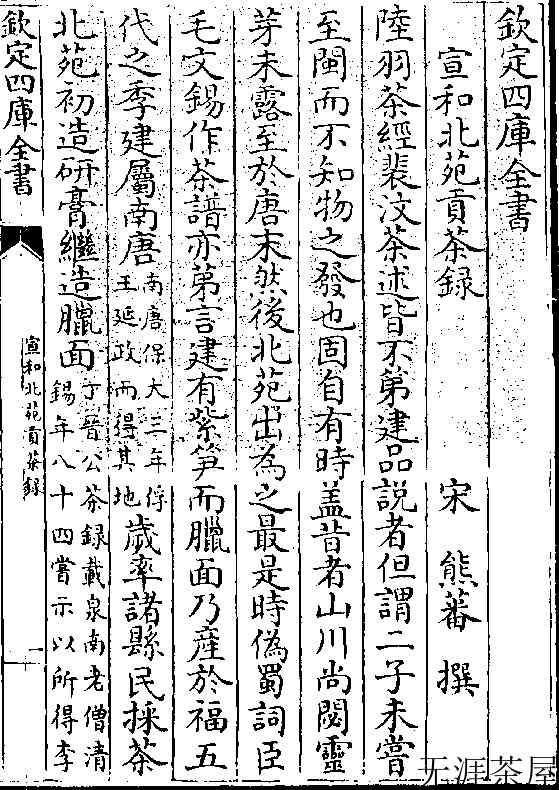 欽定四庫全書
宣和北苑貢茶録
宋 熊蕃 撰
陸羽茶經裴汶茶述皆不第建品説者但謂二子未嘗
至閩而不知物之發也固自有時蓋昔者山川尚閟靈
芽未露至於唐末然後北苑出為之最是時偽蜀詞臣
毛文錫作茶譜亦第言建有紫笋而臘面乃産於福五
代之季建屬南唐南唐保大三年俘王延政而得其地歲率諸縣民採茶
北苑初造研膏繼造臘面丁晉公茶録載泉南老僧清錫年八十四嘗示以所得李
欽定四庫全書
宣和北苑貢茶録
一
无涯茶屋